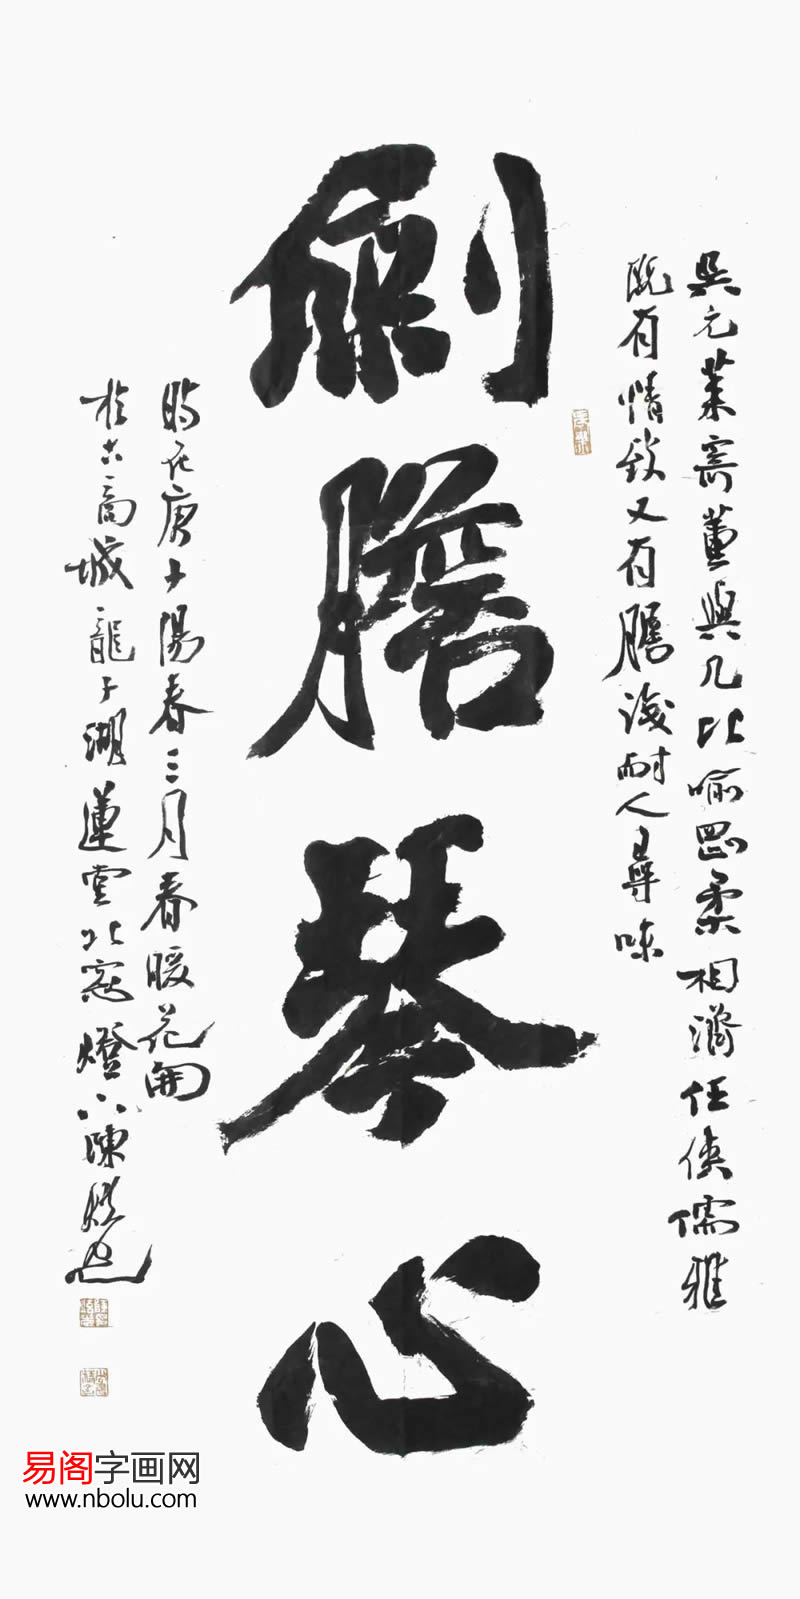 劍膽琴心
吳元萊寄董與幾比喻剛柔相濟任俠儒雅
既有情致又有膽識耐人尋味
時在庚子陽春三月春暖花開
於古商城龍子湖蓮堂北窗燈下陳
易阁字画网
www.nbolu.com